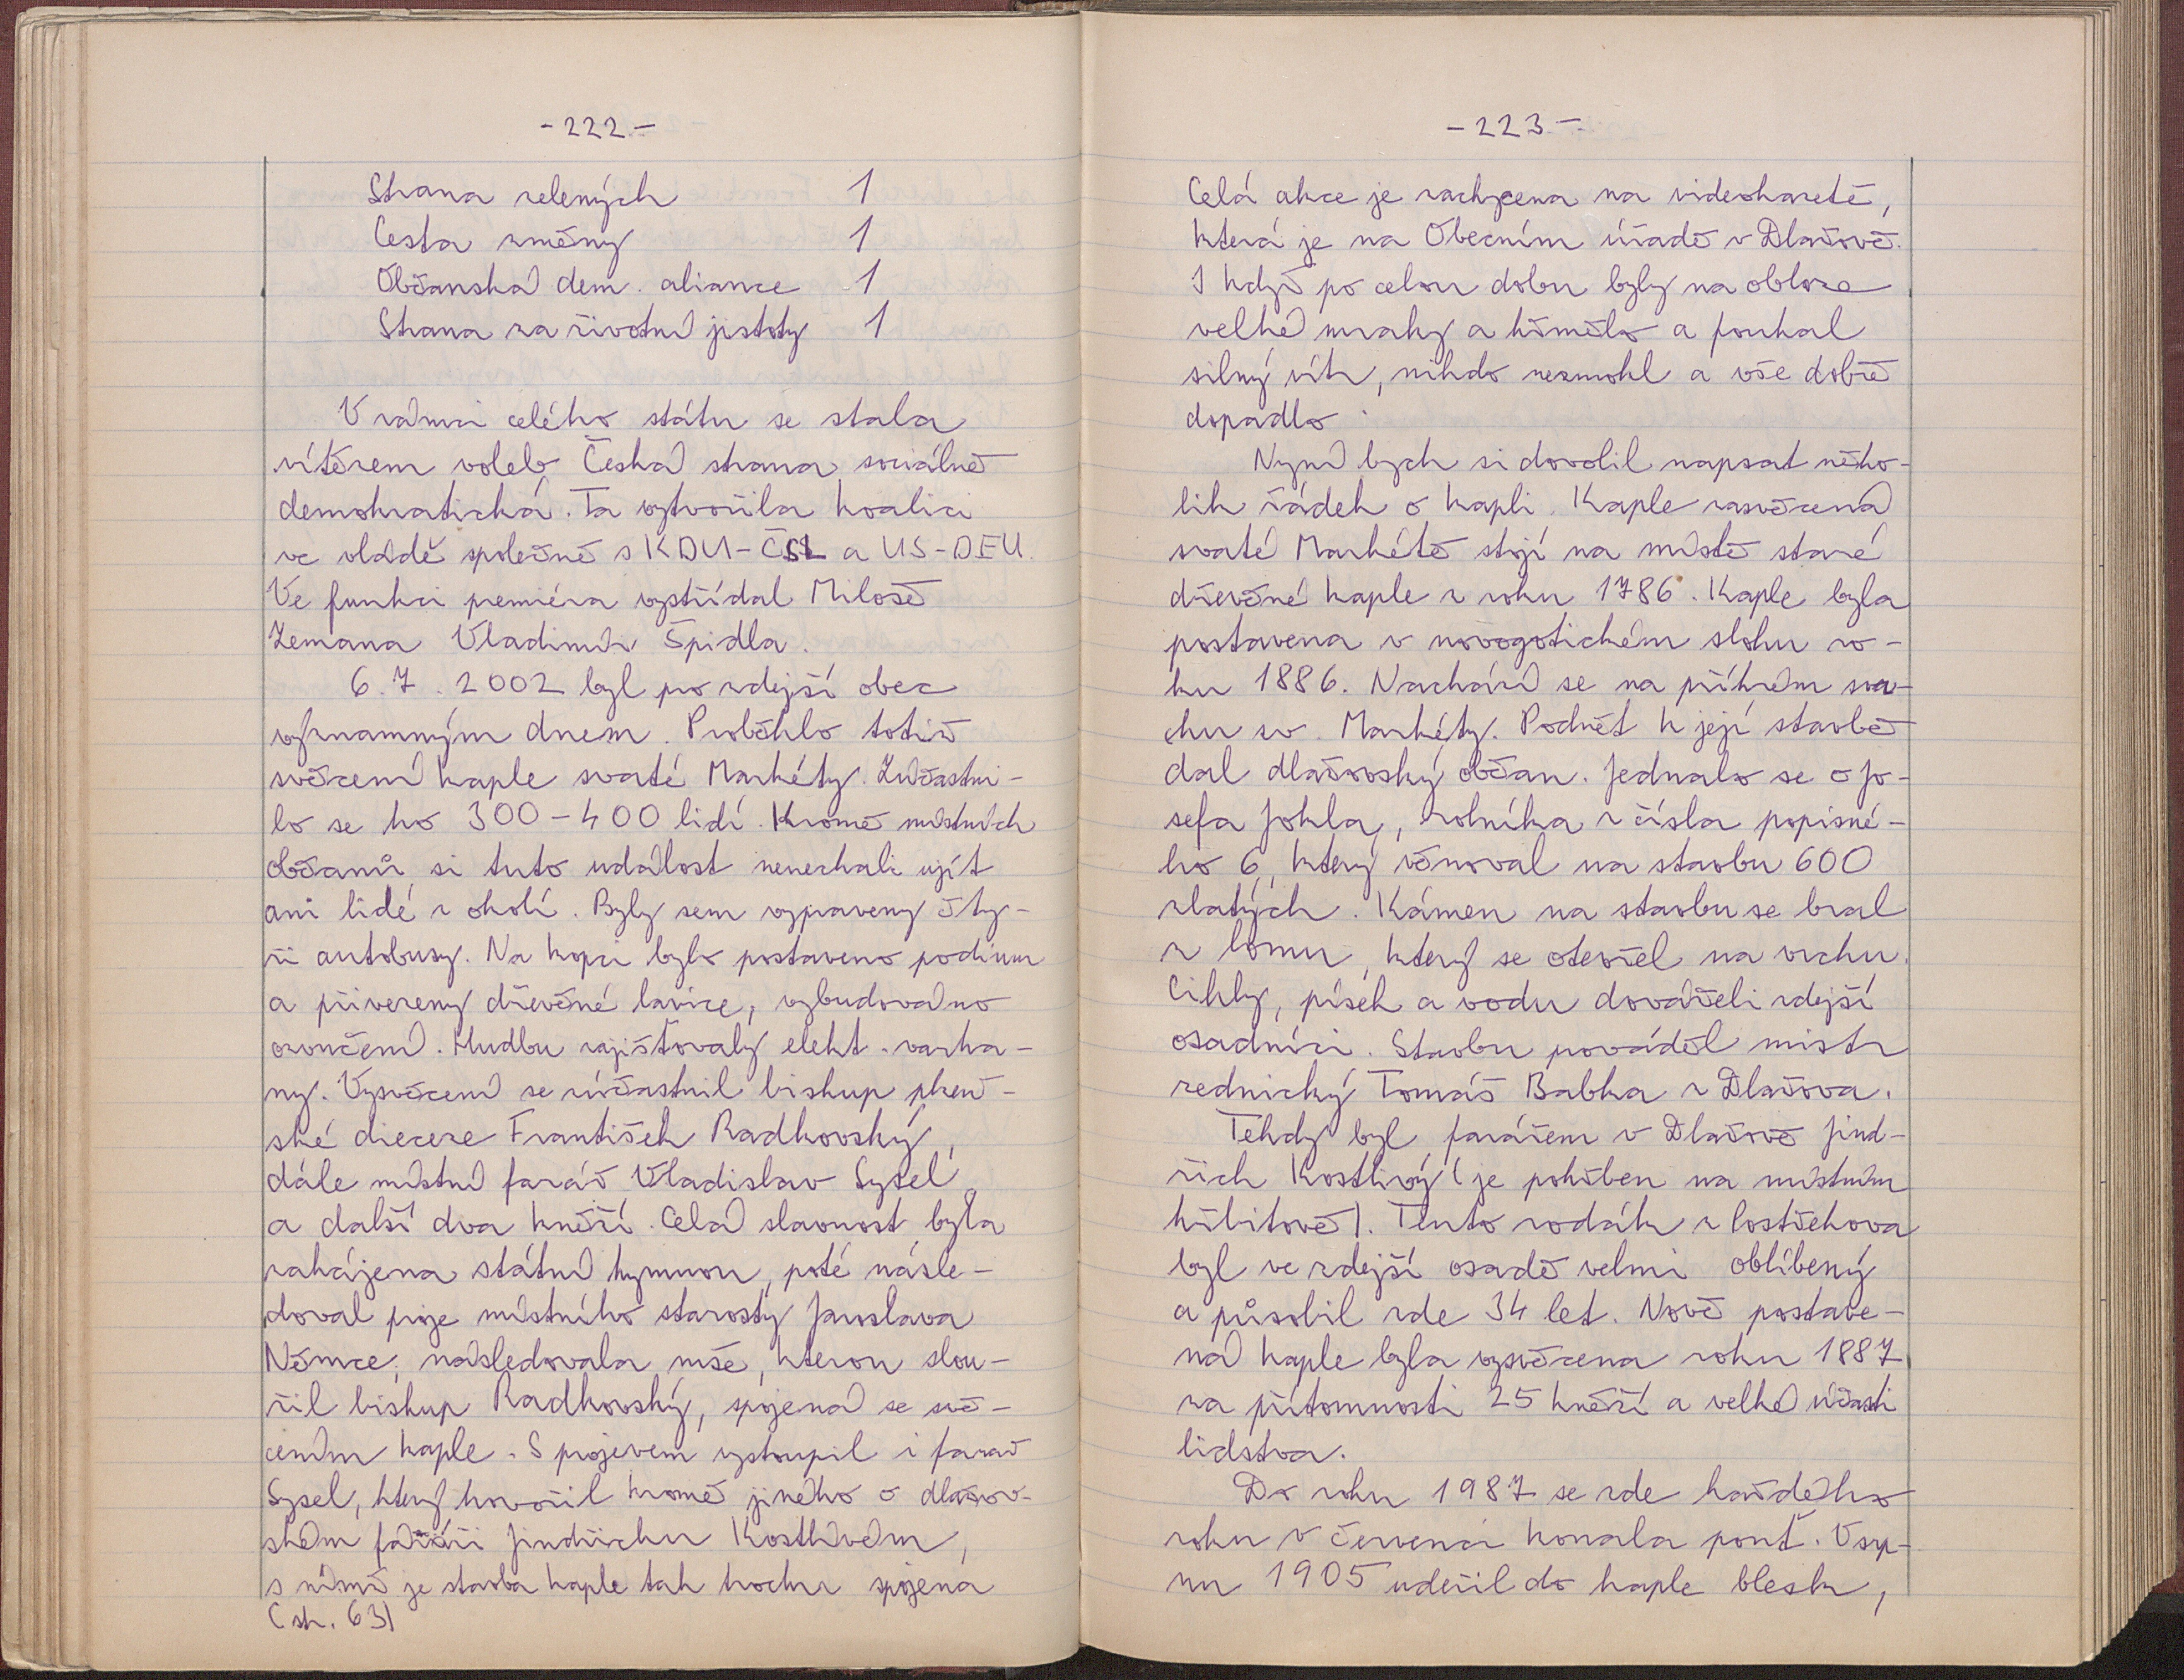 -222-
Strana zelených 1
Cesta změny 1
Občanská dem. aliance 1
Strana za životní jistoty 1
V rámci celého státu se stala
vítězem voleb Česká strana sociálně
demokratická. Ta vytvořila koalici
ve vládě společně s KDU-ČSL a US-DEU.
Ve funkci premiéra vystřídal Miloše
Zemana Vladimír Špidla.
6.7.2002 byl pro zdejší obec
významným dnem. Proběhlo totiž
svěcení kaple svaté Markéty. Zúčastni-
lo se ho 300-400 lidí. Kromě místních
občanů si tuto událost nenechali ujít
ani lidé z okolí. Byly sem vypraveny čty-
ři autobusy. Na kopci bylo postaveno podium
a přivezeny dřevěné lavice, vybudováno
ozvučení. Hudbu zajišťovaly elekt. varha-
ny. Vysvěcení se zúčastnil biskup plzeň-
ské dieceze František Radkovský,
dále místní farář Vladislav Sysel
a další dva kněží. Celá slavnost byla
zahájena státní hymnou, poté násle-
doval proje místního starosty Jaroslava
Němce, následovala mše, kterou slou-
žil biskup Radkovský, spojená se svě-
cením kaple. S projevem vystoupil i farář
Sysel, který hovořil kromě jiného o dlažov-
ském faráři Jindřichu Kostlivém,
s nímž je stavba kaple tak trochu spojena
(str. 63)
-223-
Celá akce je zachycena na videokazetě,
která je na Obecním úřadě v Dlažově.
I když po celou dobu byly na obloze
velké mraky a hřmělo a foukal
silný vítr, nikdo nezmokl a vše dobře
dopadlo.
Nyní bych si dovolil napsat něko-
lik řádek o kapli. Kaple zasvěcená
svaté Markétě stojí na místě staré
dřevěné kaple z roku 1786. Kaple byla
postavena v novogotickém slohu ro-
ku 1886. Nachází se na příkrém sva-
hu sv. Markéty. Podnět k její stavbě
dal dlažovský občan. Jednalo se o Jo-
sefa Jokla, rolníka z čísla popisné-
ho 6, který věnoval na stavbu 600
zlatých. Kámen na stavbu se bral
z lomu, který se otevřel na vrchu.
Cihly, písek a vodu dováželi zdejší
osadníci. Stavbu prováděl mistr
zednický Tomáš Babka z Dlažova.
Tehdy byl farářem v Dlažově Jind-
řich Kostlivý (je pohřben na místním
hřbitově). Tento rodák z Postřekova
byl ve zdejší osadě velmi oblíbený
a působil zde 34 let. Nově postave-
ná kaple byla vysvěcena roku 1887
za přítomnosti 25 kněží a velké účasti
lidstva.
Do roku 1987 se zde každého
roku v červenci konala pouť. V srp-
nu 1905 udeřil do kaple blesk,